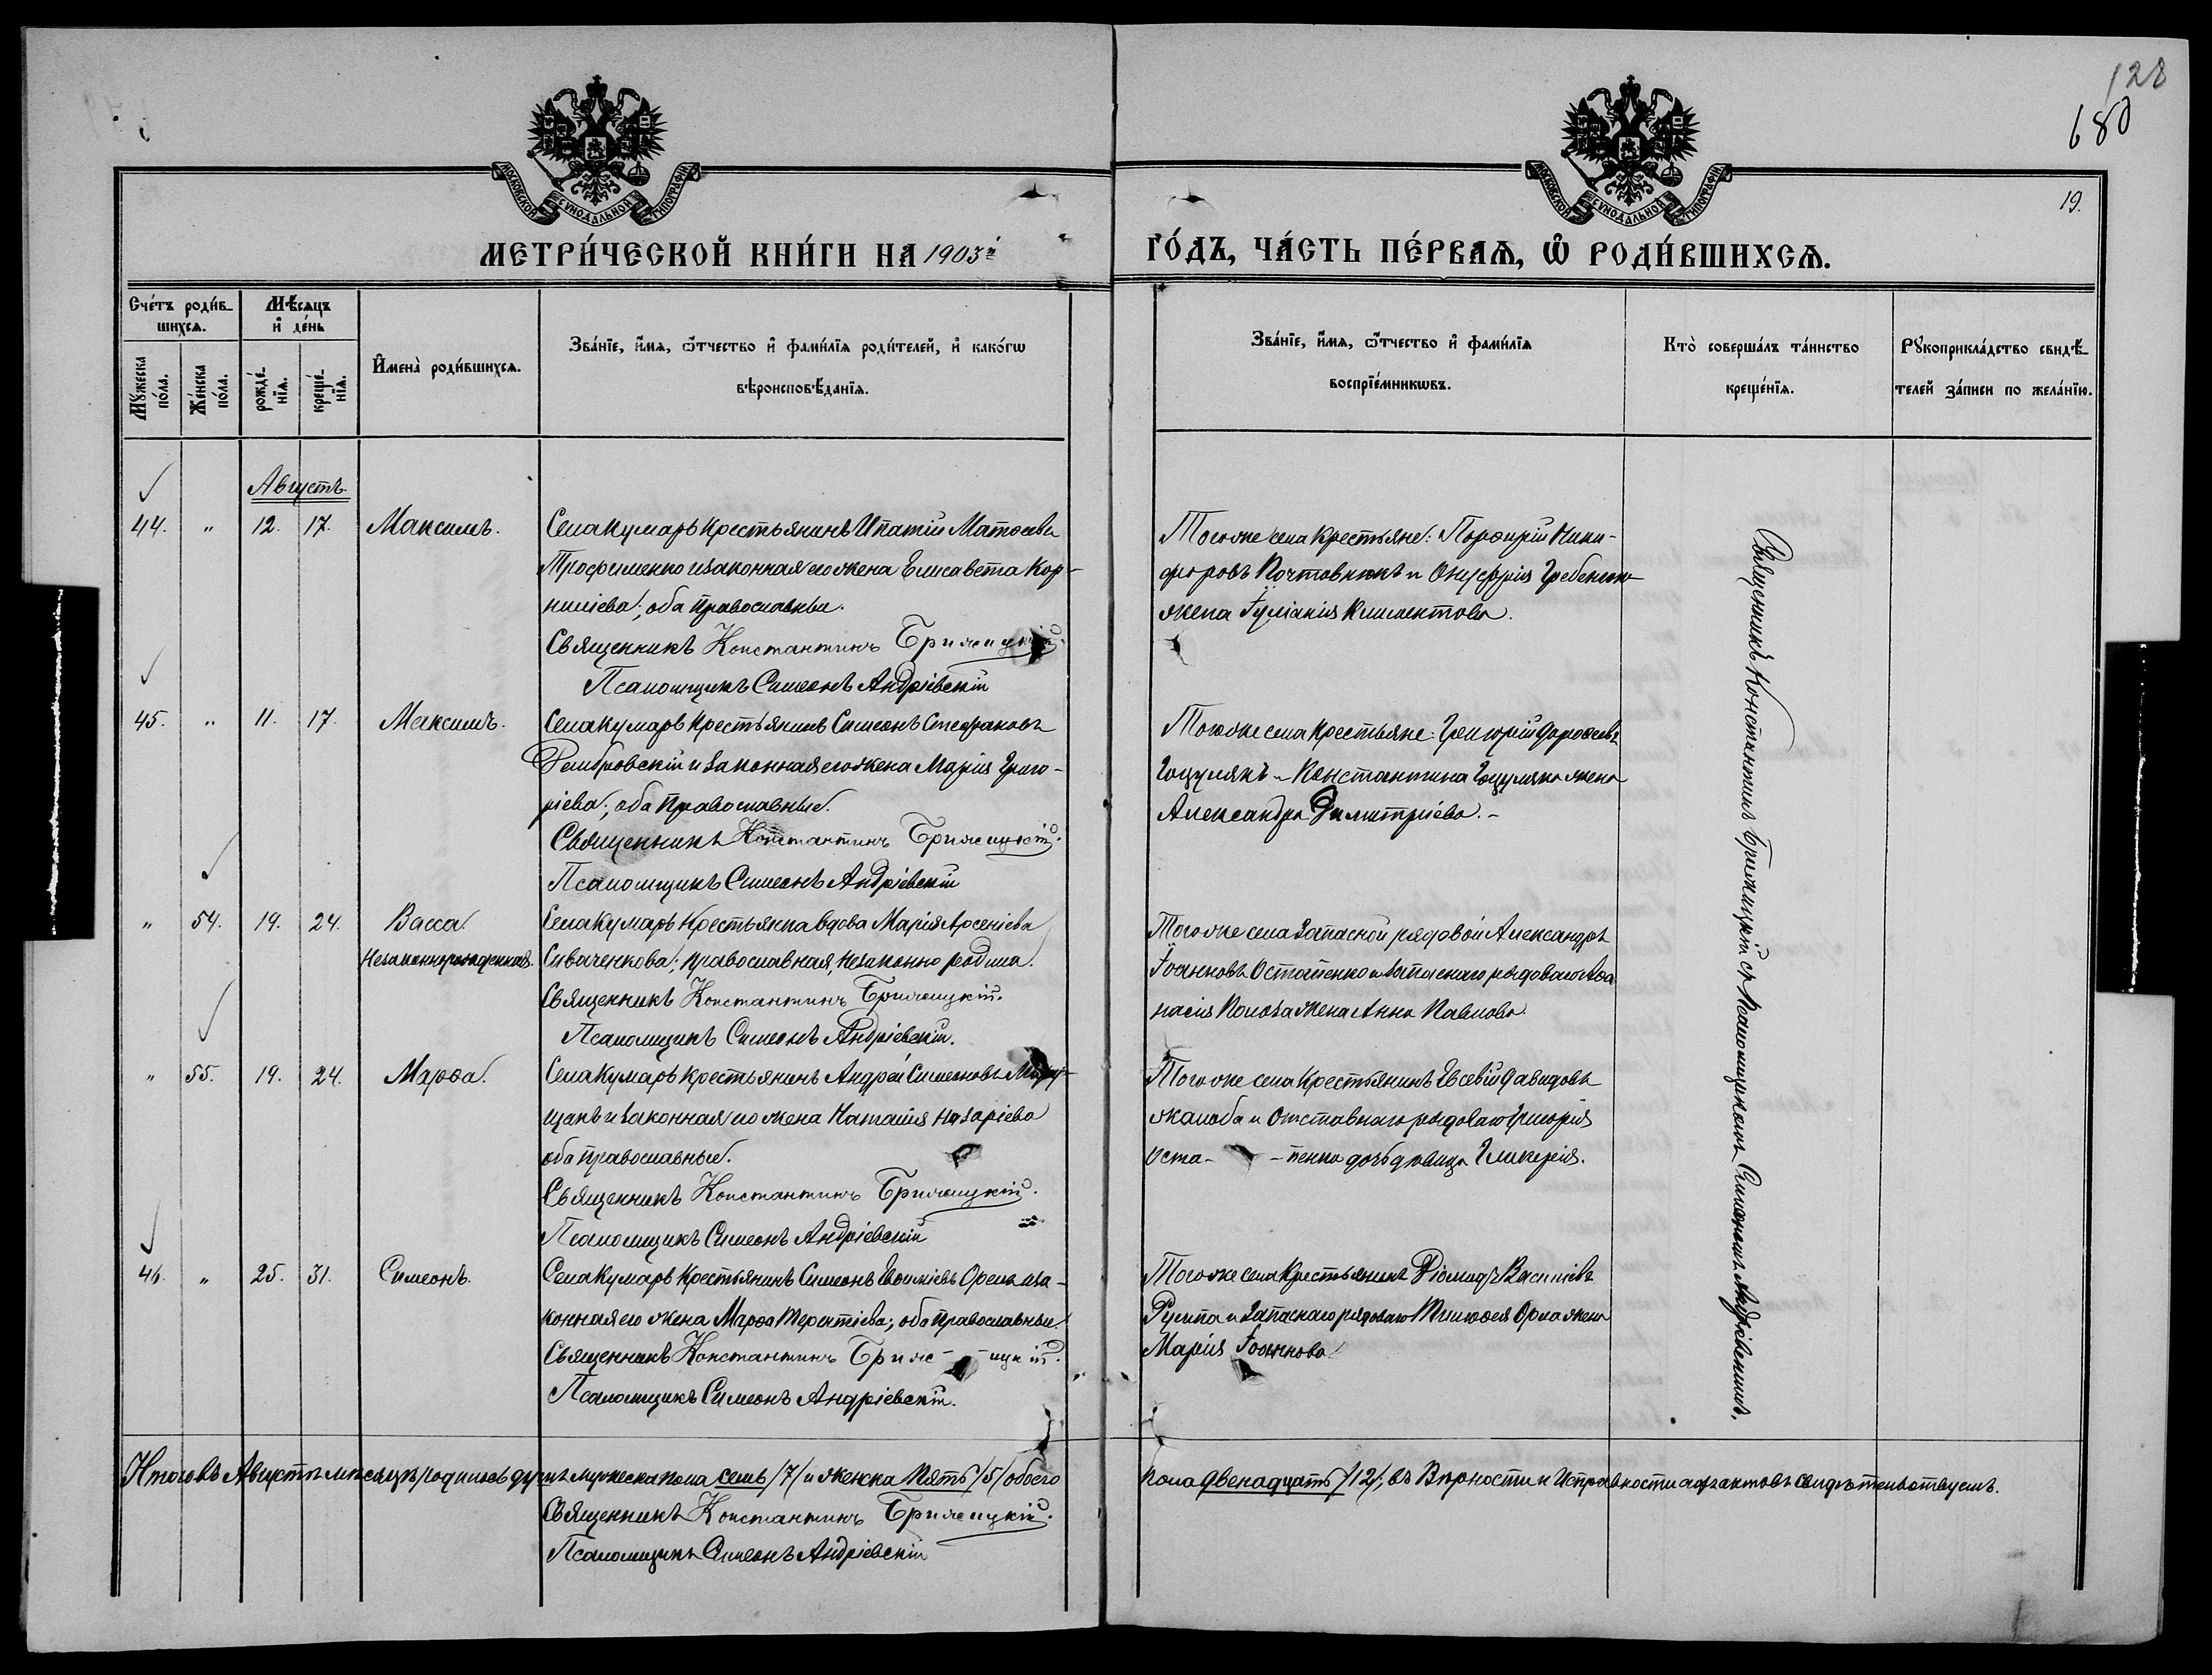 128
680
19.
МОСКОВСКОЙ СѴНОДАЛЬНОЙ ТИПОГРАФІИ
МОСКОВСКОЙ СѴНОДАЛЬНОЙ ТИПОГРАФІИ
МЕТРИ́ЧЕСКОЙ КНИ́ГИ НА 1903й
ГО́ДЪ, ЧА́СТЬ ПЕ́РВАѦ, Ѽ РОДИ́ВШИХСѦ.
Сче́тъ роди́в-
шихсѧ.
Мꙋ́жеска по́ла.
Же́нска по́ла.
Мѣ́сяцъ
и҆ де́нь
рожде́-
нїѧ.
креще́-
нїѧ.
И҆мена̀ роди́вшихсѧ.
Зва́нїе, и҆́мѧ, ѻ҆́тчество и҆ фами́лїѧ роди́телей, и҆ како́гѡ
вѣроисповѣ́данїѧ.
Зва́нїе, и҆́мѧ, ѻ҆́тчество и҆ фами́лїѧ
воспрїе́мникѡвъ.
Кто̀ соверша́лъ та́инство
креще́нїѧ.
Рꙋкоприкла́дство свидѣ́-
телей за́писи по жела́нїю.
Августъ.
44. " 12. 17. Максимъ.
Села Кумаръ крестьянинъ Ипатій Матѳеевъ
Трофименко и законная его жена Елисавета Кор-
нилiева; оба православные.
Священникъ Константинъ Брижицкій.
Псаломщикъ Симеонъ Андріевскій
Того же села крестьяне: Порфирій Ники-
форовъ Почтовикъ и Онуфрія Гребенюка
жена Іуліанія Климентова.
45. " 11. 17. Максимъ.
Села Кумаръ крестьянинъ Симеонъ Стефановъ
Домбровскій и законная его жена Марія Григо-
ріева; оба православные.
Священникъ Константинъ Брижицкій.
Псаломщикъ Симеонъ Андріевскій
Того же села крестьяне: Григорій Дороѳеевъ
Гоцулякъ и Константина Гоцуляка жена
Александра Димитріева. -
" 54. 19. 24. Васса.
Незаконнорожденная.
Села Кумаръ крестьянка вдова Марія Арсеніева
Сиваченкова; православная, незаконно родила.
Священникъ Константинъ Брижицкій.
Псаломщикъ Симеонъ Андріевскій.
Того же села запасной рядовой Александръ
Іоанновъ Остапенко и запаснаго рядоваго Аѳа
насія жена Анна Павлова.
" 55. 19. 24. Марѳа.
Села Кумаръ крестьянинъ Андрей Симеоновъ
и законная его жена Наталія Назаріева
оба православные.
Священникъ Константинъ Брижицкій.
Псаломщикъ Симеонъ Андріевскій
Того же села крестьянинъ Евсевій Давидовъ
Жалоба и отставнаго рядоваго Григорія
Оста- -пенка дочь дѣвица Гликерія.
46. " 25. 31. Симеонъ.
Села Кумаръ крестьянинъ Симеонъ Орелъ и за-
конная его жена Марѳа Терентіева; оба православные.
Священникъ Константинъ Бриж- -ицкій.
Псаломщикъ Симеонъ Андріевскій.
Того же села крестьянинъ Діомидъ Василіевъ
и запаснаго рядоваго Тимоѳея Орла жена
Марія Іоаннова.
Священникъ Константинъ Брижицкій съ псаломщикомъ Симеономъ Андріевскимъ.
Итого въ Августѣ мѣсяцѣ родилось душъ мужеска пола семь /7/ и женска пять /5/ обоего
пола двенадцать /12/; въ вѣрности и исправности актовъ свидѣтельствуемъ.
Священникъ Константинъ Брижицкій.
Псаломщикъ Симеонъ Андріевскій